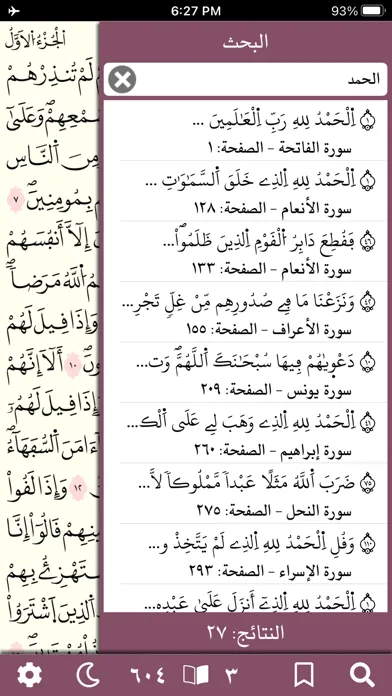 6:27 PM
93%
البحث
الحمد
اِ۬لْحَمْدُ لِلهِ رَبِّ اِ۬لْعَٰلَمِينَ ... ١
سورة الفاتحة - الصفحة: ١
اِ۬لْحَمْدُ لِلهِ اِ۬لذِے خَلَقَ اَ۬لسَّمَٰوَٰتِ ... ١
سورة الأنعام - الصفحة: ١٢٨
فَقُطِعَ دَابِرُ اُ۬لْقَوْمِ اِ۬لذِينَ ظَلَمُواْۖ... ٤٦
سورة الأنعام - الصفحة: ١٣٣
وَنَزَعْنَا مَا فِے صُدُورِهِم مِّنْ غِلّٖ تَجْرِ... ٤٢
سورة الأعراف - الصفحة: ١٥٥
دَعْوٜيٰهُمْ فِيهَا سُبْحَٰنَكَ اَ۬للَّهُمَّۖ وَت... ١٠
سورة يونس - الصفحة: ٢٠٩
اِ۬لْحَمْدُ لِلهِ اِ۬لذِے وَهَبَ لِے عَلَى اَ۬لْكِ... ٤١
سورة إبراهيم - الصفحة: ٢٦٠
ضَرَبَ اَ۬للَّهُ مَثَلًا عَبْداٗ مَّمْلُوكاٗ لَّا... ٧٥
سورة النحل - الصفحة: ٢٧٥
وَقُلِ اِ۬لْحَمْدُ لِلهِ اِ۬لذِے لَمْ يَتَّخِذْ و... ١١٠
سورة الإسراء - الصفحة: ٢٩٣
اِ۬لْحَمْدُ لِلهِ اِ۬لذِےٓ أَنزَلَ عَلَىٰ عَبْدِهِ... ١
النتائج: ٢٧
اَلْجُزْءُ الْأَوَّلُ
لَمْ تُنذِرْهُمْ
سَمْعِهِمْۖ وَعَلَىٰٓ
مِنَ اَ۬لنَّاسِ
بِمُومِنِينَۖ ٧
إِلَّآ أَنفُسَهُمْ
اُ۬للَّهُ مَرَضاٗۖ
وَإِذَا قِيلَ لَهُمْ
١٠ أَلَآ إِنَّهُمْ
وَإِذَا قِيلَ لَهُمُۥٓ
ءَامَنَ اَ۬لسُّفَهَآءُۖ
١٢ وَإِذَا لَقُواْ
قَالُوٓاْ إِنَّا
يَسْتَهْزِئُ بِهِمْ
اَ۬لذِينَ اَ۪شْتَرَوُاْ
٦٠٤
٣